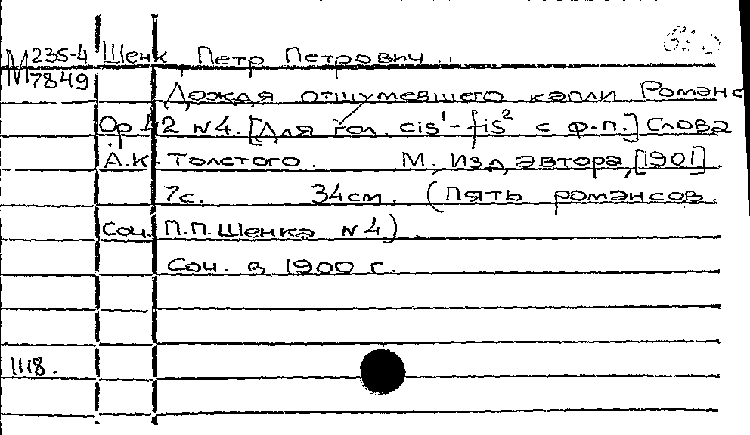 М 235-4 Шенк Петр Петрович
7849
Дождя отшумевшего капли Романс
Ор.42 №4. [Для гол. cis¹-fis² с ф-п.] Слова
А.К. Толстого. М., Изд. автора, [1901]
7с. 34см. (Пять романсов
Соч. П.П.Шенка №4).
Соч. в 1900 г.
1118.